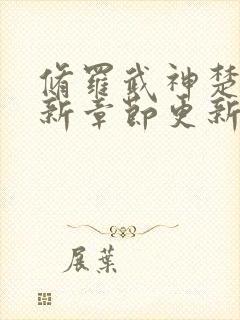 脩羅武神楚
新章節更新
展葉